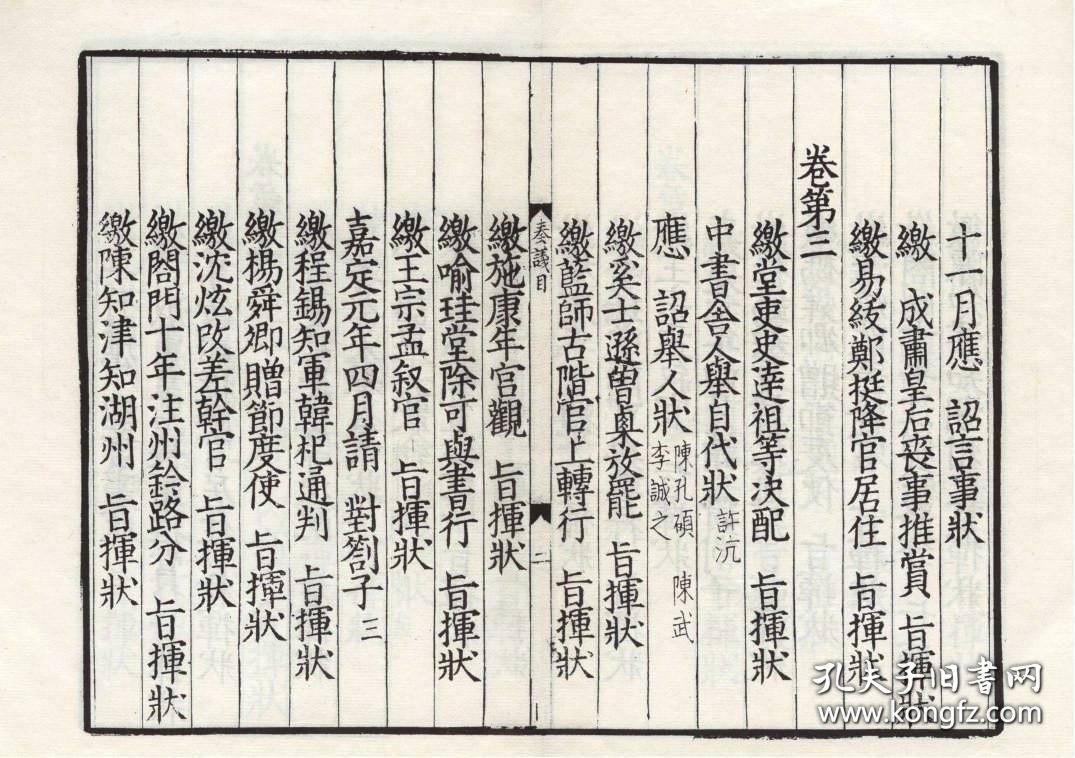 十一月應　詔言事狀
繳　成肅皇后喪事推賞　㫖揮狀
繳易綏鄭挺降官居住　㫖揮狀
卷第三
繳堂吏史逹祖等决配　㫖揮狀
中書舍人舉自代狀 許沆
應　詔舉人狀 陳孔碩　陳武　李誠之
繳奚士遜曽㮚放罷　㫖揮狀
繳藍師古階官上轉行　㫖揮狀
奏議目　二
繳施康年官觀　㫖揮狀
繳喻珪堂除可與書行　㫖揮狀
繳王宗孟叙官　㫖揮狀
嘉定元年四月請　對劄子 三
繳程錫知軍韓杞通判　㫖揮狀
繳楊舜卿贈節度使　㫖揮狀
繳沈炫改差幹官　㫖揮狀
繳閤門十年注州鈐路分　㫖揮狀
繳陳知津知湖州　㫖揮狀
孔夫子旧书网
www.kongfz.com